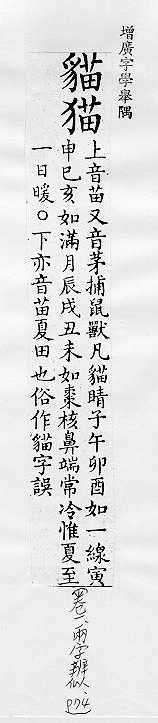 增廣字學舉隅
貓猫
上音苗又音茅捕鼠獸凡貓睛子午卯酉如一線寅
申巳亥如滿月辰戌丑未如棗核鼻端常冷惟夏至
一日暖〇下亦音苗夏田也俗作貓字誤
(卷二、兩字辨似、974)